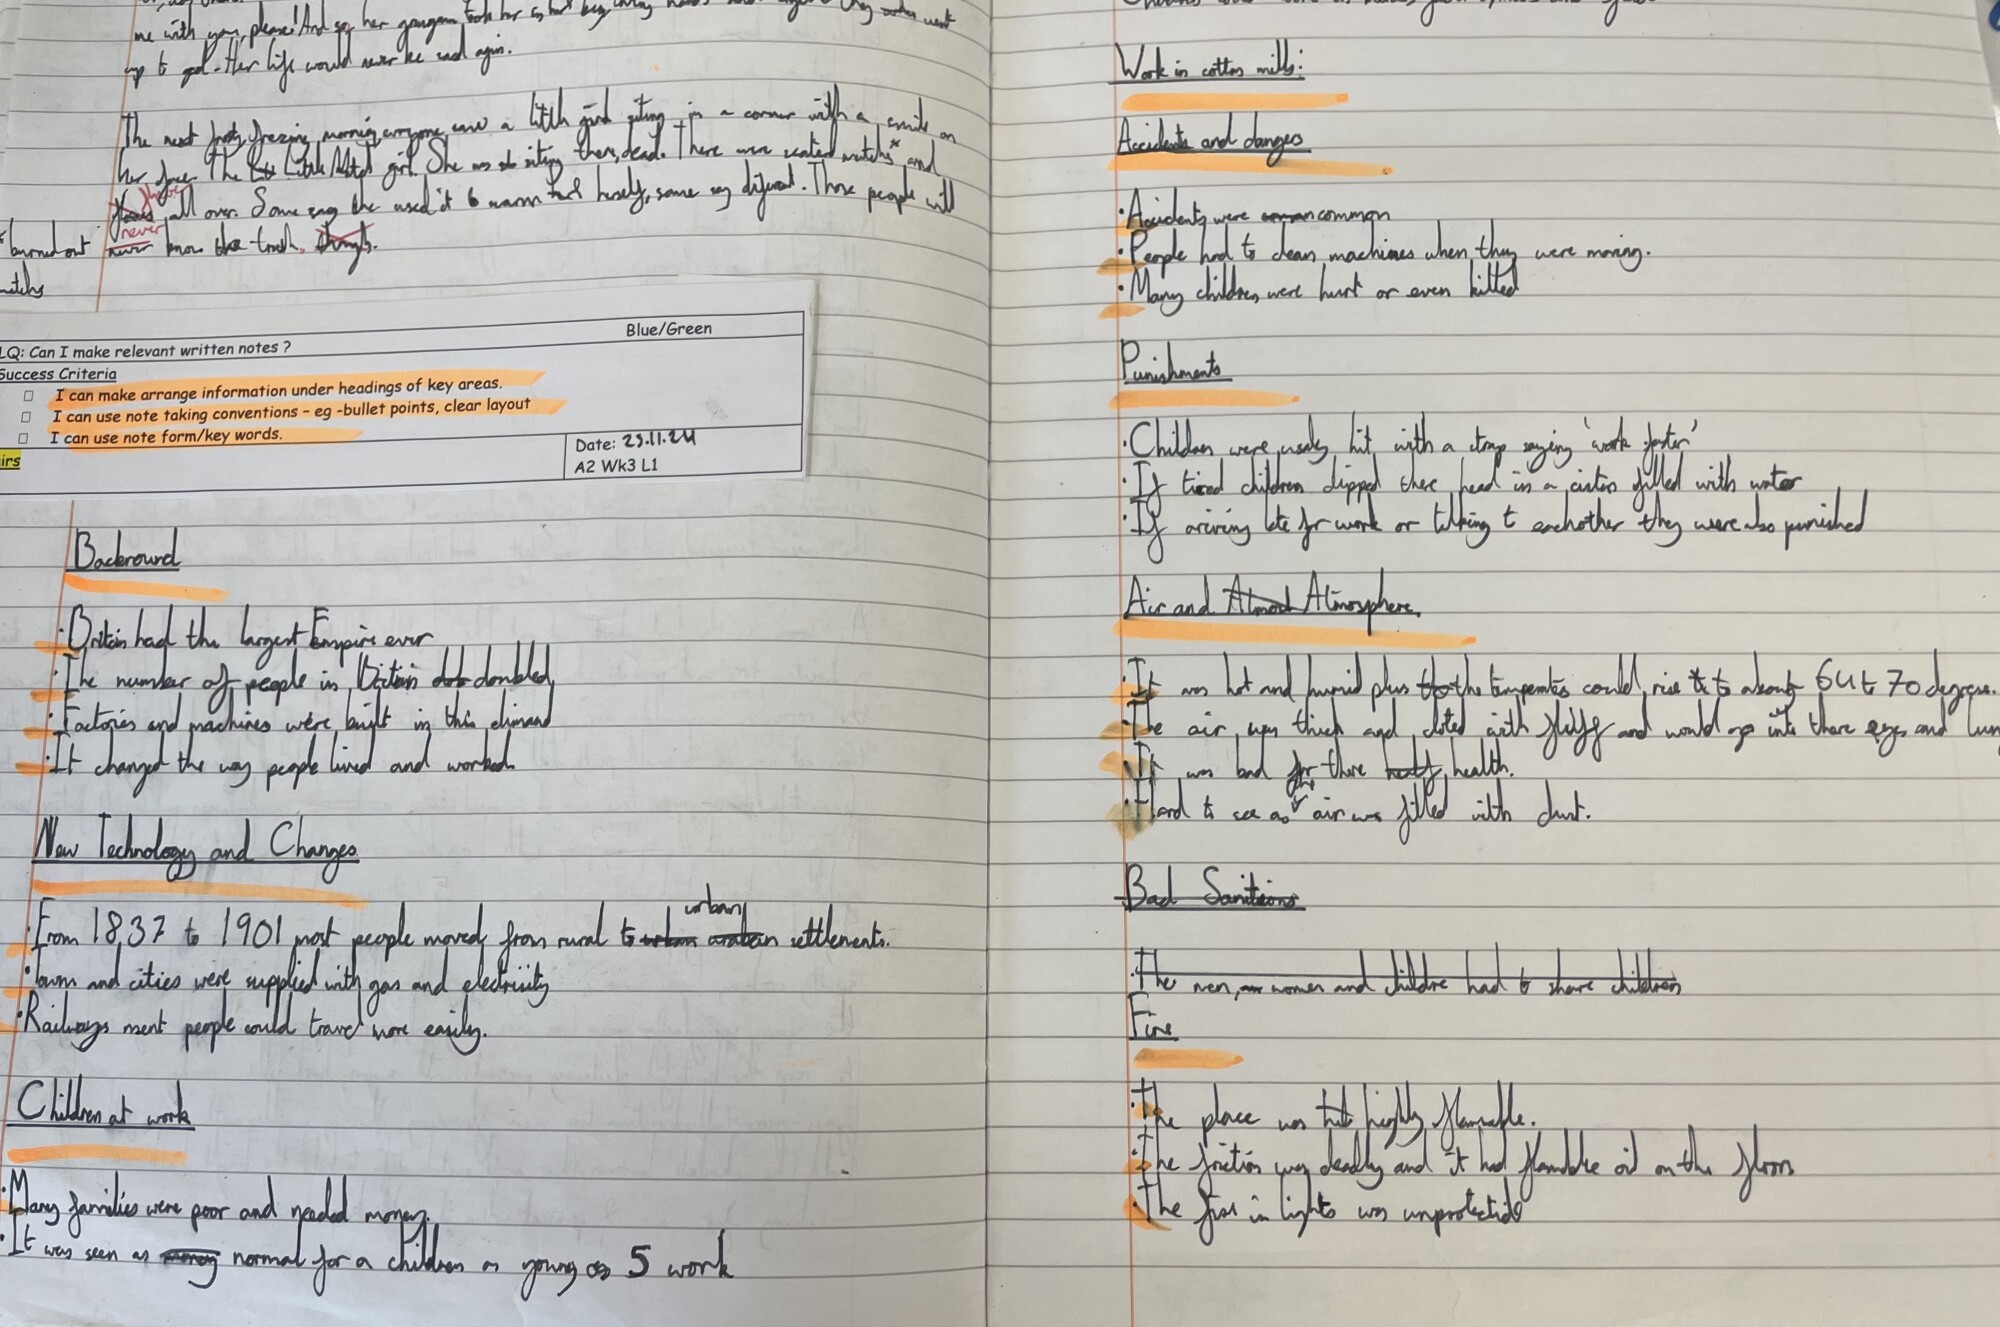 me with you, please! And so, her grangran took her
up to god. Her life would never be sad agin.
The next frosty, frezing, morning, everyone saw a little gird siting in a corner with a smile on
her face. The Little Match girl. She was siting there, dead. There were matchs* and
all over. Some say she used it to warm herself, some say diferent. Those people will
never
* burned out never know the truth. though.
matchs
Blue/Green
LQ: Can I make relevant written notes ?
Success Criteria
□ I can make arrange information under headings of key areas.
□ I can use note taking conventions – eg -bullet points, clear layout
□ I can use note form/key words.
Date: 29.11.24
A2 Wk3 L1
irs
Backround
• Britain had the largest Empire ever
• The number of people in Britain doubled
• Factories and machines were built in this dimand
• It changed the way people lived and worked.
New Technology and Changes
urban
• From 1837 to 1901 most people moved from rural to settlements.
• Towns and cities were supplied with gas and electricity
• Railways ment people could travel more easily.
Children at work
• Many families were poor and needed money.
• It was seen as money normal for a children as young as 5 work
Work in cotton mills:
Accidents and dangers
• Accidents were common
• People had to clean machines when they were moving.
• Many children were hurt or even killed
Punishments
• Children were hit with a strap saying 'work faster'
• If tired children dipped there head in a filled with water
• If ariving late for work or talking to eachother they were also punished
Air and Atmosphere
• It was hot and humid plus the could rise to about 64 to 70 degrese.
• The air was thick and with fluff and would go into there eyes and
• It was bad for there health.
the
• Hard to see as air was filled with dust.
Bad Sanitions
• The men, women and childre had to share children
Fire
• The place was highly flamable.
• The friction was deadly and it had flamable oil on the floors
• The fire in lights was unprotected